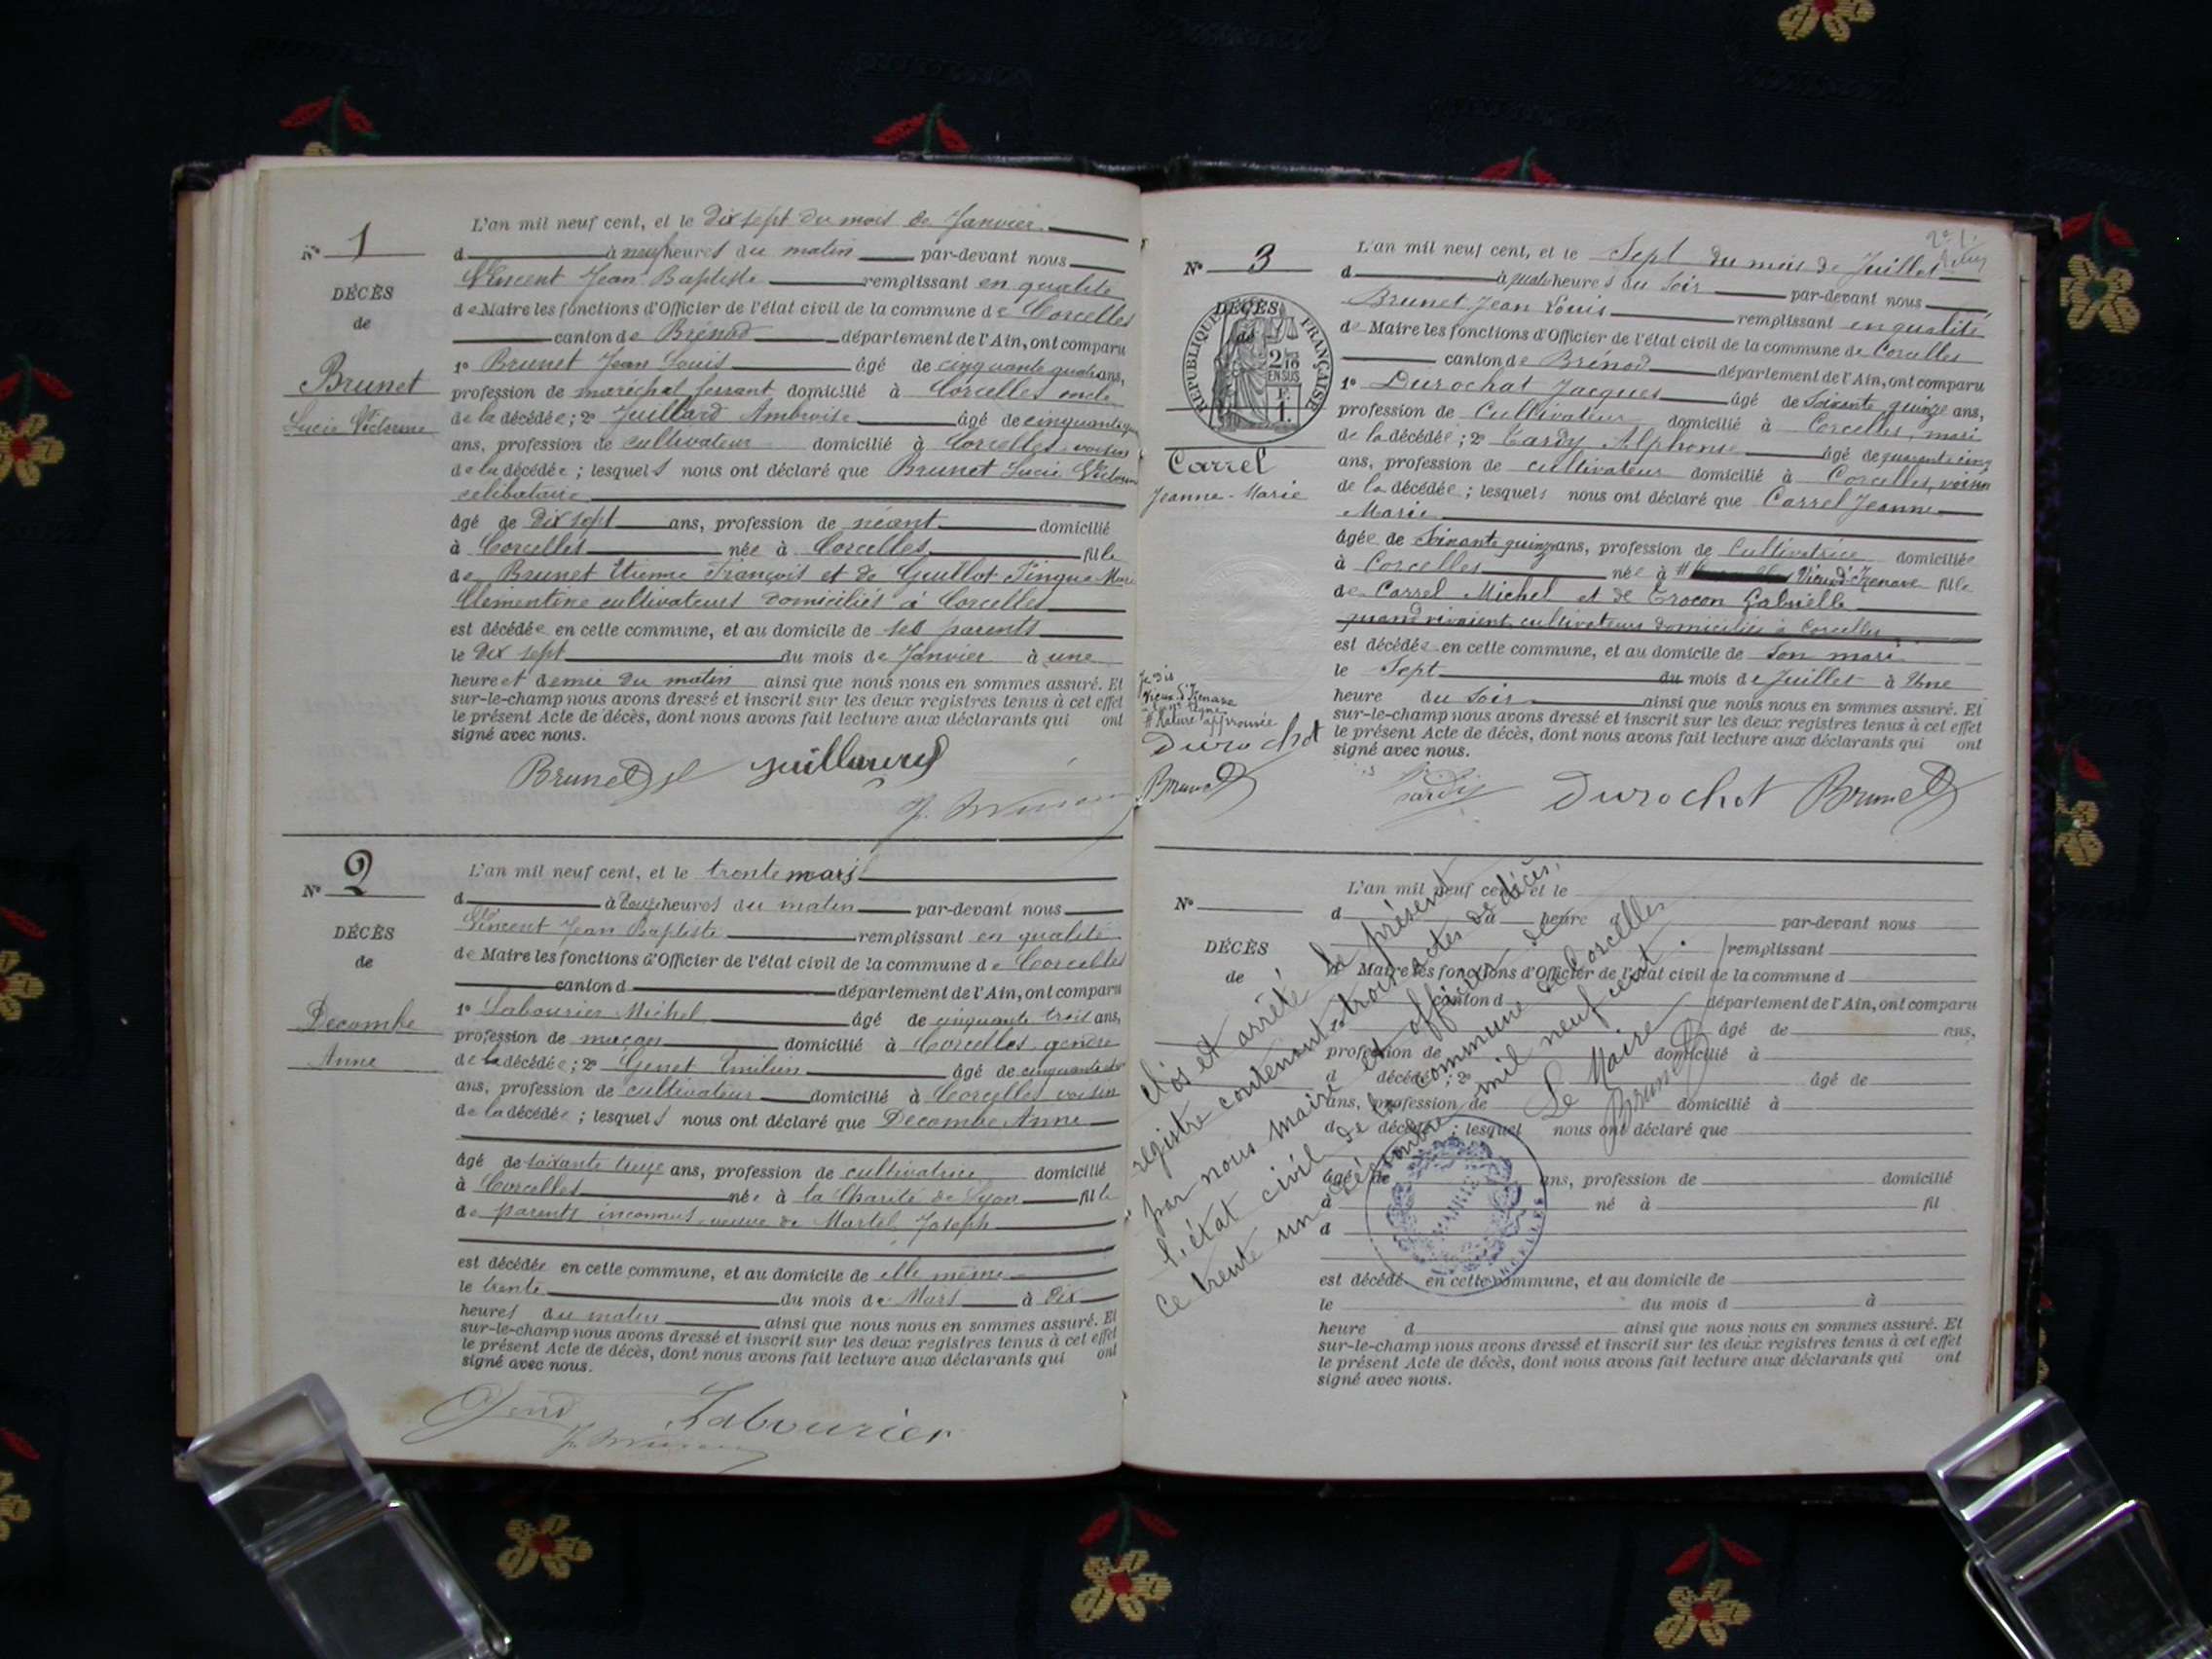 N° 1
DÉCÈS
de
Brunet
Lucie Victorine
L'an mil neuf cent, et le dix sept du mois de Janvier
d à neuf heures du matin par-devant nous
Vincent Jean Baptiste remplissant en qualité
de Maire les fonctions d'Officier de l'état civil de la commune de Corcelles
canton de Brénod département de l'Ain, ont comparu
1° Brunet Jean Louis âgé de cinquante quatre ans,
profession de maréchal ferrant domicilié à Corcelles oncle
de la décédée; 2° Juillard Ambroise âgé de cinquante
ans, profession de cultivateur domicilié à Corcelles voisin
de la décédée; lesquels nous ont déclaré que Brunet Lucie Victorine
célibataire
âgé de dix sept ans, profession de néant domicilié
à Corcelles née à Corcelles fille
de Brunet Etienne François et de Guillot Pingue Marie
Clémentine cultivateurs domiciliés à Corcelles
est décédée en cette commune, et au domicile de ses parents
le dix sept du mois de Janvier à une
heure et demie du matin ainsi que nous nous en sommes assuré. Et
sur-le-champ nous avons dressé et inscrit sur les deux registres tenus à cet effet
le présent Acte de décès, dont nous avons fait lecture aux déclarants qui ont
signé avec nous.
Brunet
N° 2
DÉCÈS
de
Decombe
Anne
L'an mil neuf cent, et le trente mars
d à douze heures du matin par-devant nous
Vincent Jean Baptiste remplissant en qualité
de Maire les fonctions d'Officier de l'état civil de la commune de Corcelles
canton d département de l'Ain, ont comparu
1° Labourier Michel âgé de cinquante trois ans,
profession de maçon domicilié à Corcelles gendre
de la décédée; 2° Genet Emilien âgé de cinquante
ans, profession de cultivateur domicilié à Corcelles voisin
de la décédée; lesquels nous ont déclaré que Decombe Anne
âgé de soixante treize ans, profession de cultivatrice domicilié
à Corcelles née à la Charité de Lyon fille
de parents inconnus veuve de Martel Joseph
est décédée en cette commune, et au domicile de elle même
le trente du mois de Mars à dix
heures du matin ainsi que nous nous en sommes assuré. Et
sur-le-champ nous avons dressé et inscrit sur les deux registres tenus à cet effet
le présent Acte de décès, dont nous avons fait lecture aux déclarants qui ont
signé avec nous.
Labourier
N° 3
DÉCÈS
de
RÉPUBLIQUE FRANÇAISE
2/10 EN SUS
Carrel
Jeanne-Marie
L'an mil neuf cent, et le Sept du mois de Juillet
d à quatre heures du soir par-devant nous
Brunet Jean Louis remplissant en qualité
de Maire les fonctions d'Officier de l'état civil de la commune de Corcelles
canton de Brénod département de l'Ain, ont comparu
1° Durochat Jacques âgé de Soixante quinze ans,
profession de Cultivateur domicilié à Corcelles, mari
de la décédée; 2° Tardy Alphonse âgé de quarante cinq
ans, profession de cultivateur domicilié à Corcelles, voisin
de la décédée; lesquels nous ont déclaré que Carrel Jeanne
Marie
âgée de Soixante quinze ans, profession de Cultivatrice domiciliée
à Corcelles née à # Vieu-d'Izenave fille
de Carrel Michel et de Trocon Gabrielle
quand vivaient cultivateurs domiciliés à Corcelles
est décédée en cette commune, et au domicile de Son mari
le Sept du mois de Juillet à Une
heure du Soir ainsi que nous nous en sommes assuré. Et
sur-le-champ nous avons dressé et inscrit sur les deux registres tenus à cet effet
le présent Acte de décès, dont nous avons fait lecture aux déclarants qui ont
signé avec nous.
Je dis
Vieu-d'Izenave
# Rature approuvée
Durochat
Brunet
Tardy Durochat Brunet
N°
DÉCÈS
de
L'an mil neuf cent, et le
d à heure par-devant nous
remplissant
d Maire les fonctions d'Officier de l'état civil de la commune d
canton d département de l'Ain, ont comparu
1° âgé de ans,
profession de domicilié à
d décédé; 2° âgé de
ans, profession de domicilié à
d décédé; lesquel nous ont déclaré que
âgé de ans, profession de domicilié
à né à fil
d
est décédé en cette commune, et au domicile de
le du mois d à
heure d ainsi que nous nous en sommes assuré. Et
sur-le-champ nous avons dressé et inscrit sur les deux registres tenus à cet effet
le présent Acte de décès, dont nous avons fait lecture aux déclarants qui ont
signé avec nous.
Clos et arrêté le présent
registre contenant trois actes de décès,
par nous maire et officier de
l'état civil de la commune de Corcelles
ce trente un décembre mil neuf cent.
Le Maire
Brunet
MAIRIE